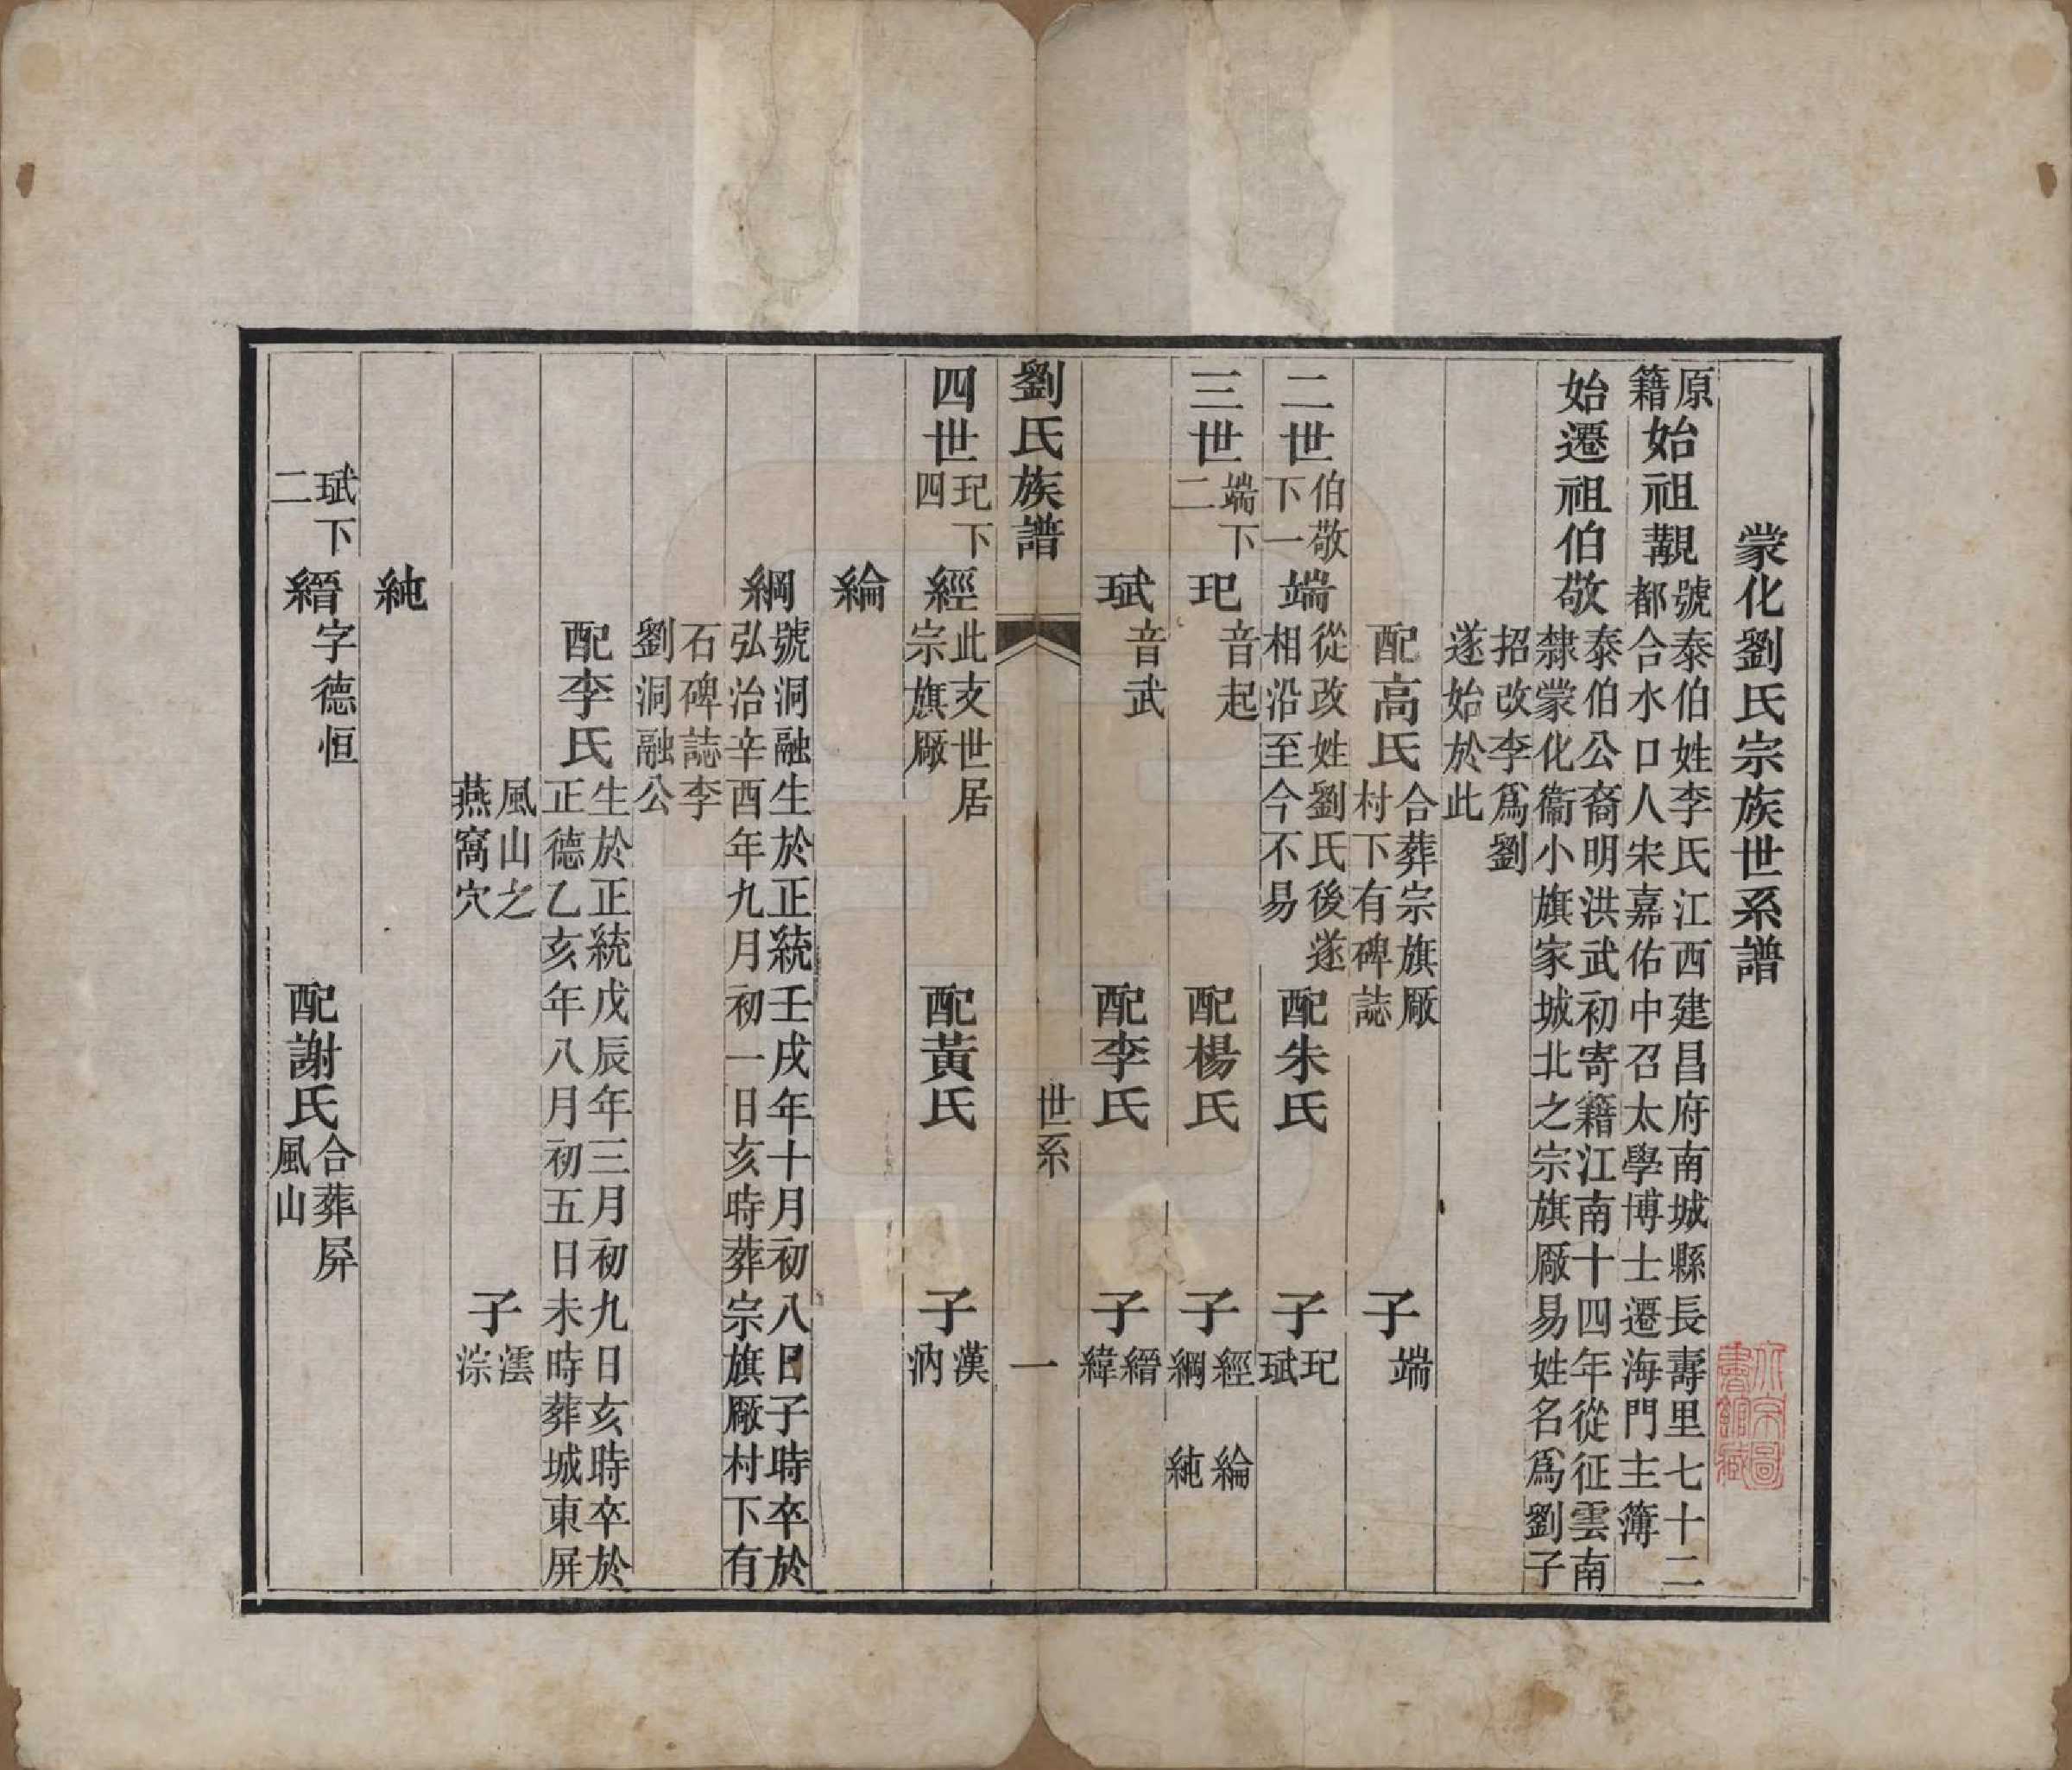 蒙化劉氏宗族世系譜
原籍始祖覯號泰伯姓李氏江西建昌府南城縣長壽里七十二
都合水口人宋嘉佑中召太學博士遷海門主簿
始遷祖伯敬泰伯公裔明洪武初寄籍江南十四年從征雲南
隸蒙化衞小旗家城北之宗旗厰易姓名爲劉子
招改李爲劉
遂始於此
配高氏合葬宗旗厰
村下有碑誌
子端
二世伯敬下一端從改姓劉氏後遂
相沿至今不易
配朱氏
子玘
珷
三世端下二玘音起
配楊氏
子經綸
綱純
珷音武
配李氏
子縉
緯
劉氏族譜
世系
一
四世玘下四經此支世居
宗旗厰
配黃氏
子漢
汭
綸
綱號洞融生於正統壬戌年十月初八日子時卒於
弘治辛酉年九月初一日亥時葬宗旗厰村下有
石碑誌李
劉洞融公
配李氏生於正統戊辰年三月初九日亥時卒於
正德乙亥年八月初五日未時葬城東屏
風山之
燕窩穴
子澐
淙
純
珷下二縉字德恒
配謝氏合葬屏
風山